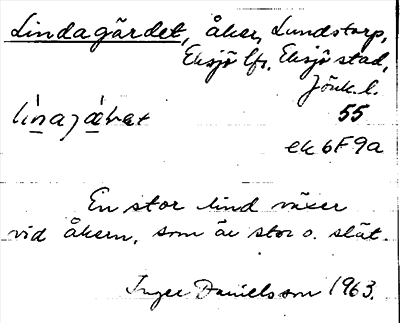 Lindagärdet, åker, Lundstorp,
Eksjö lfs, Eksjö stad,
Jönk. l.
55
ek 6F9a
En stor lind växer
vid åkern, som är stor o. slät.
Inger Danielsson 1963.